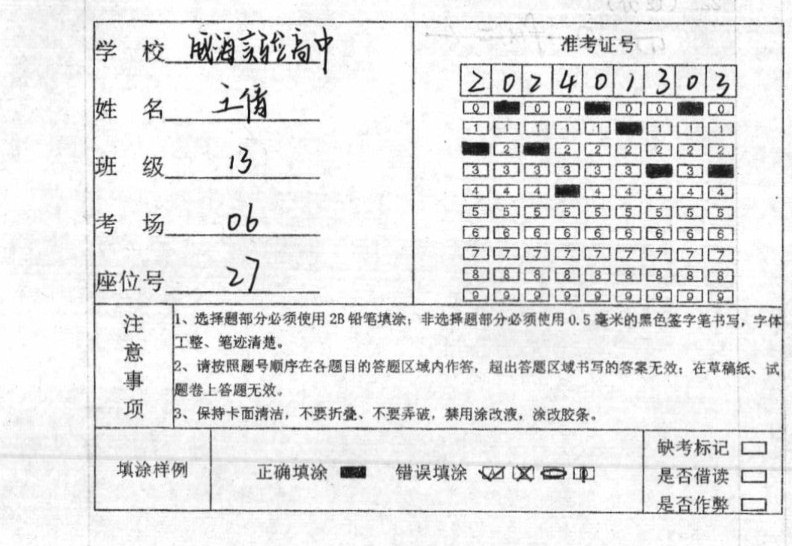 学 校 威海实验高中
姓 名 王倩
班 级 13
考 场 06
座位号 27
准考证号
2 0 2 4 0 1 3 0 3
0 0 0 0 0 0
1 1 1 1 1 1 1 1
2 2 2 2 2 2 2
3 3 3 3 3 3 3
4 4 4 4 4 4 4 4
5 5 5 5 5 5 5 5 5
6 6 6 6 6 6 6 6 6
7 7 7 7 7 7 7 7 7
8 8 8 8 8 8 8 8 8
9 9 9 9 9 9 9 9 9
注意事项
1、选择题部分必须使用 2B 铅笔填涂；非选择题部分必须使用 0.5 毫米的黑色签字笔书写，字体
工整、笔迹清楚。
2、请按照题号顺序在各题目的答题区域内作答，超出答题区域书写的答案无效；在草稿纸、试
题卷上答题无效。
3、保持卡面清洁，不要折叠、不要弄破，禁用涂改液，涂改胶条。
填涂样例 正确填涂 错误填涂
缺考标记
是否借读
是否作弊